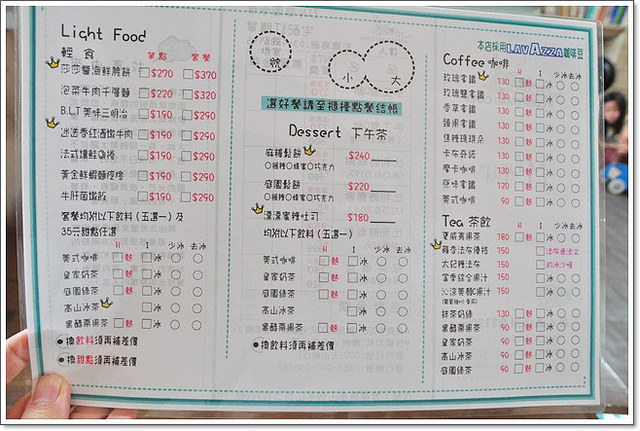 Light Food
輕食 單點 套餐
莎莎醬海鮮脆餅 $270 $370
泡菜牛肉千層麵 $220 $320
B.L.T 美味三明治 $190 $290
迷迭香紅酒燉牛肉 $190 $290
法式燻鮭魚捲 $190 $290
黃金鮮蝦 $190 $290
牛肝菌燉飯 $190 $290
套餐均附以下飲料(五選一)及
35元甜點任選
H I 少冰 去冰
美式咖啡 熱 冰
皇家奶茶 熱 冰
庭園綠茶 熱 冰
高山冰茶 冰
黑醋栗果茶 熱 冰
換飲料須再補差價
換甜點須再補差價
號
小
大
選好餐請至櫃檯點餐結帳
Dessert 下午茶
麻糬鬆餅 $240
楓糖 蜂蜜 巧克力
庭園鬆餅 $220
楓糖 蜂蜜 巧克力
濃濃蜜糖吐司 $180
均附以下飲料(五選一)
H I 少冰 去冰
美式咖啡 熱 冰
皇家奶茶 熱 冰
庭園綠茶 熱 冰
高山冰茶 冰
黑醋栗果茶 熱 冰
換飲料須再補差價
本店採用LAVAZZA咖啡豆
Coffee 咖啡 H I 少冰 去冰
玫瑰拿鐵 130 熱 冰
玫瑰鹽拿鐵 130 熱 冰
香草拿鐵 130 熱 冰
榛果拿鐵 130 熱 冰
焦糖瑪琪朵 130 熱 冰
卡布奇諾 130 熱 冰
摩卡咖啡 130 熱 冰
原味拿鐵 120 熱 冰
美式咖啡 90 熱 冰
Tea 茶飲 H I 少冰 去冰
夏威夷果茶 180 熱 冰
蘋香法布優格 150
太妃糖法布 150
富季綜合果汁 150 冰
沁涼美顏C果汁 150 冰
抹茶奶綠 130 熱 冰
黑醋栗果茶 90 熱 冰
皇家奶茶 90 熱 冰
高山冰茶 90 冰
庭園綠茶 90 熱 冰